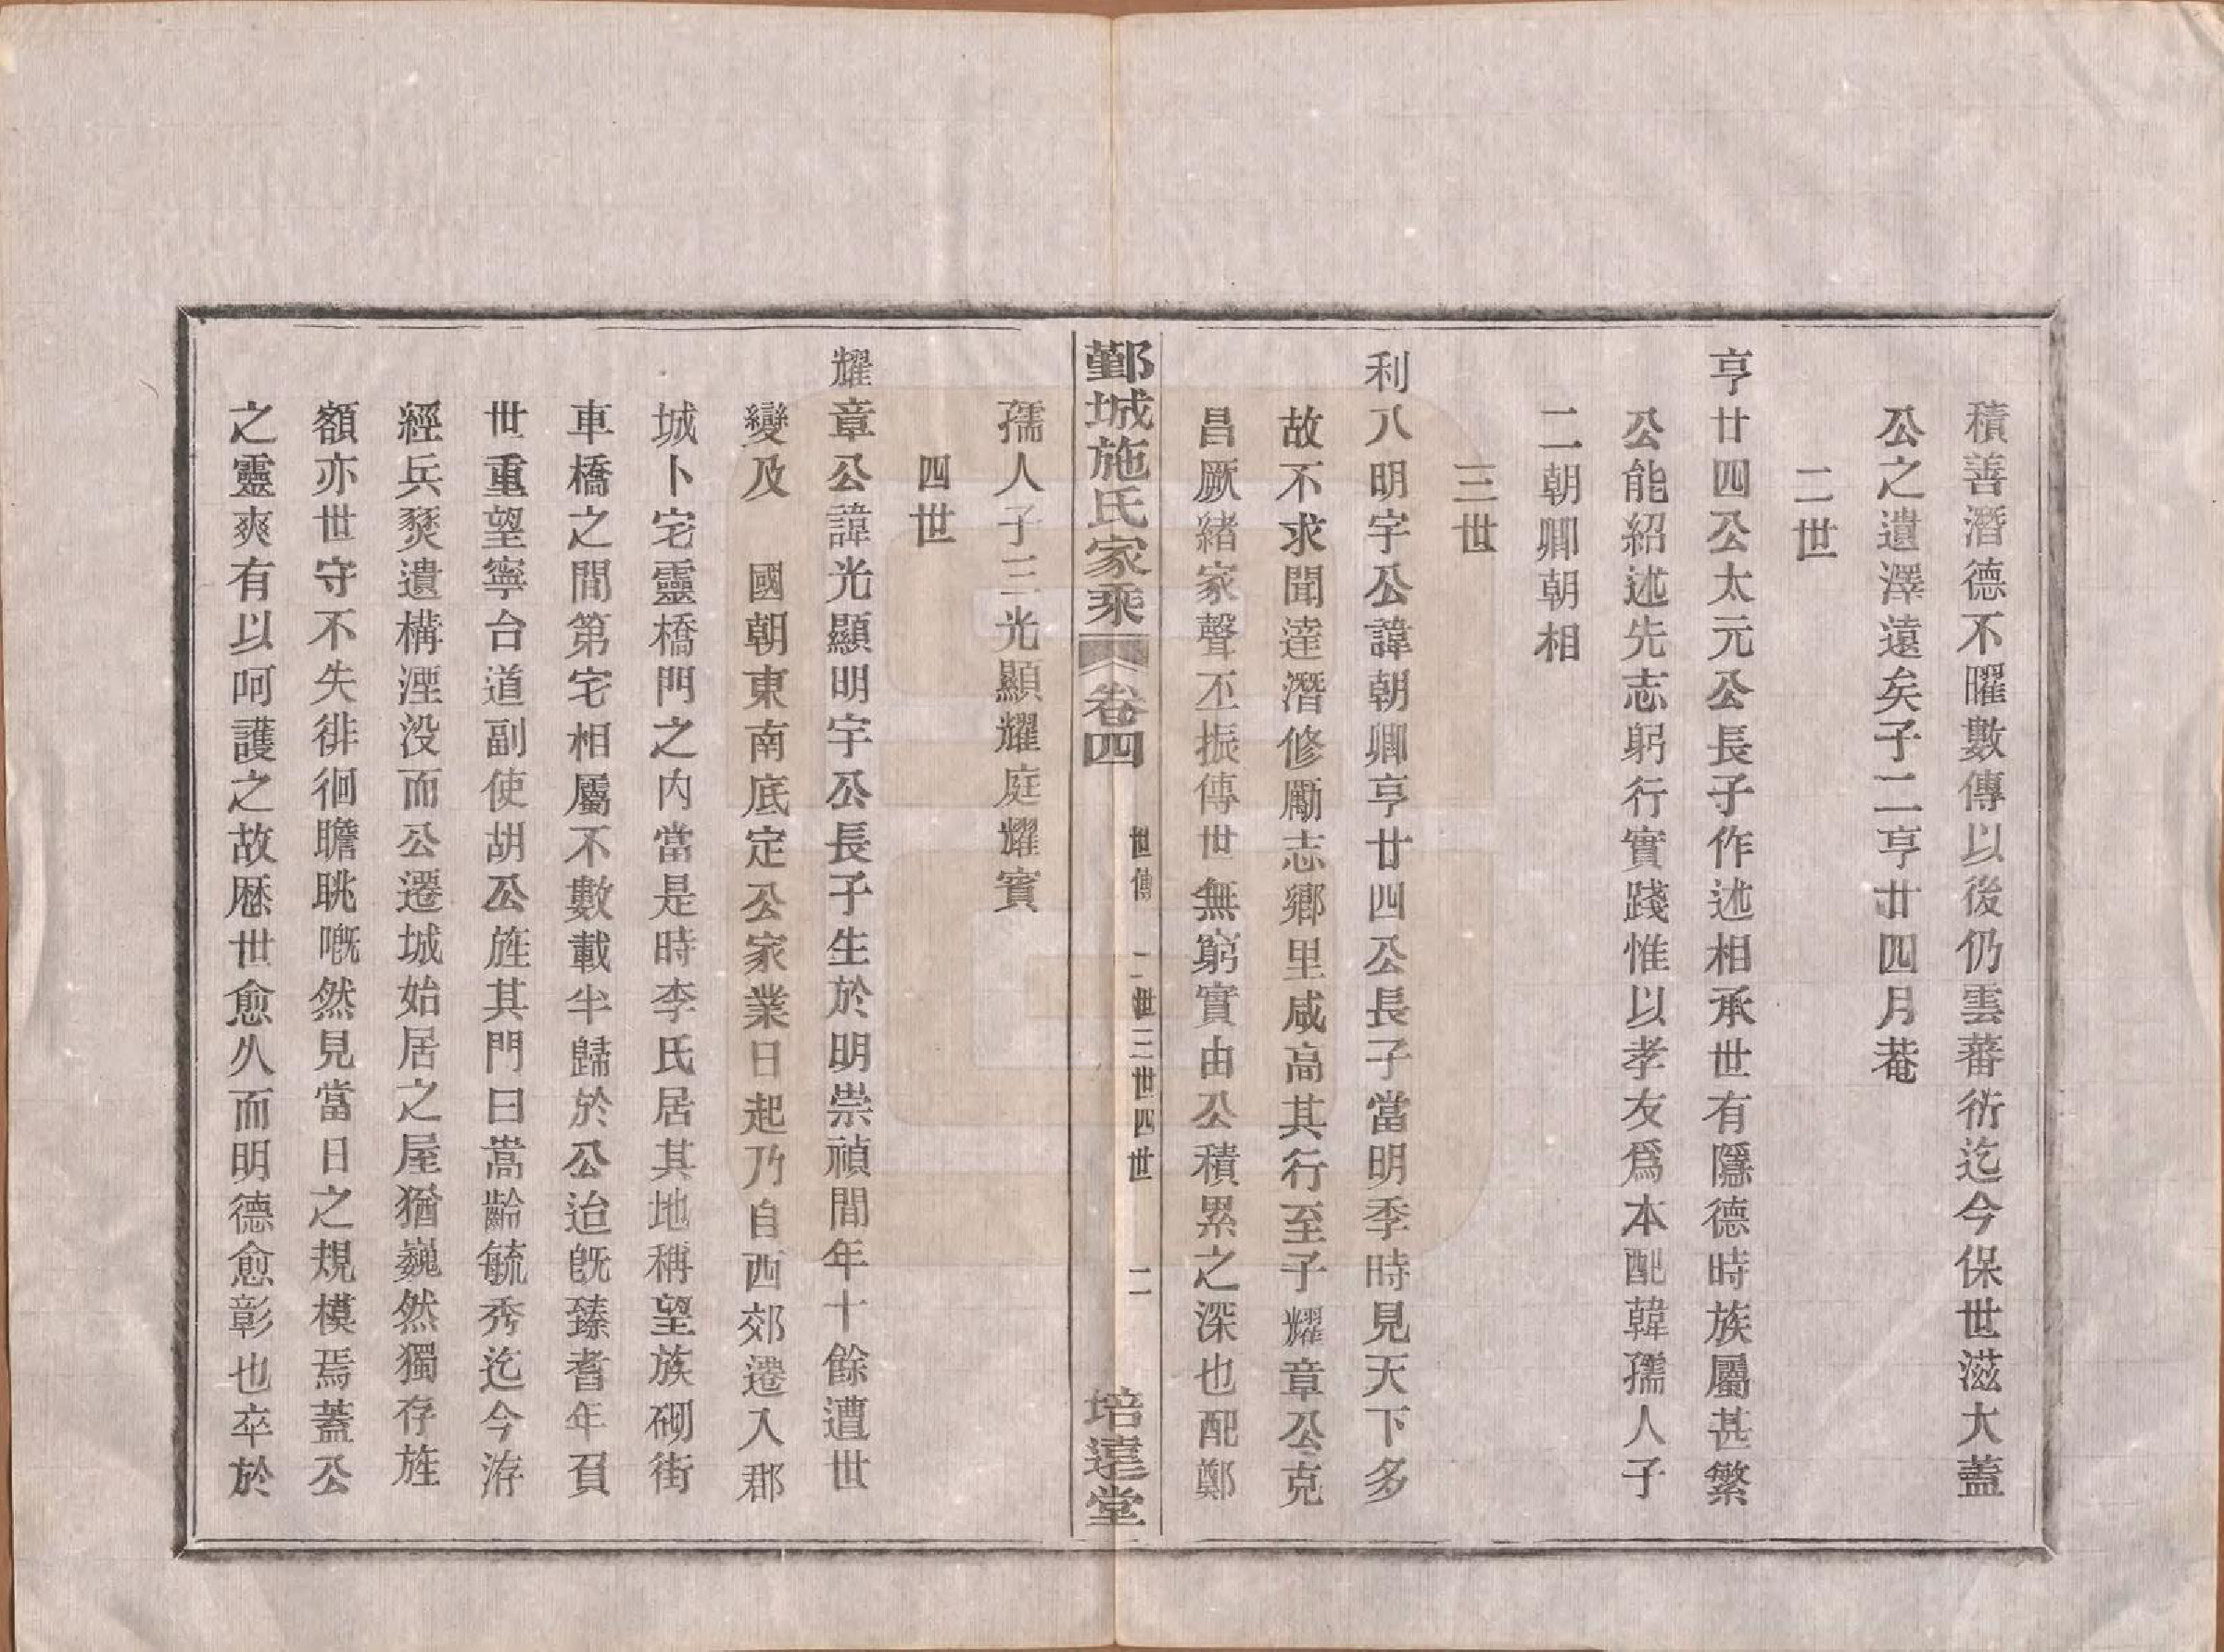 積善潛德不曜數傳以後仍雲蕃衍迄今保世滋大蓋
公之遺澤遠矣子二亨廿四月菴
二世
亨廿四公太元公長子作述相承世有隱德時族屬甚繁
公能紹述先志躬行實踐惟以孝友爲本配韓孺人子
二朝卿朝相
三世
利八明宇公諱朝卿亨廿四公長子當明季時見天下多
故不求聞達潛修勵志鄉里咸高其行至子耀章公克
昌厥緒家聲丕振傳世無窮實由公積累之深也配鄭
鄞城施氏家乘 卷四 世傳 二世三世四世 二 培遠堂
孺人子三光顯耀庭耀賓
四世
耀章公諱光顯明宇公長子生於明崇禎間年十餘遭世
變及 國朝東南底定公家業日起乃自西郊遷入郡
城卜宅靈橋門之內當是時李氏居其地稱望族砌街
車橋之間第宅相屬不數載半歸於公迨旣臻耆年負
世重望寧台道副使胡公旌其門曰嵩齡毓秀迄今洊
經兵燹遺構湮没而公遷城始居之屋猶巍然獨存旌
額亦世守不失徘徊瞻眺嘅然見當日之規模焉蓋公
之靈爽有以呵護之故歷世愈久而明德愈彰也卒於